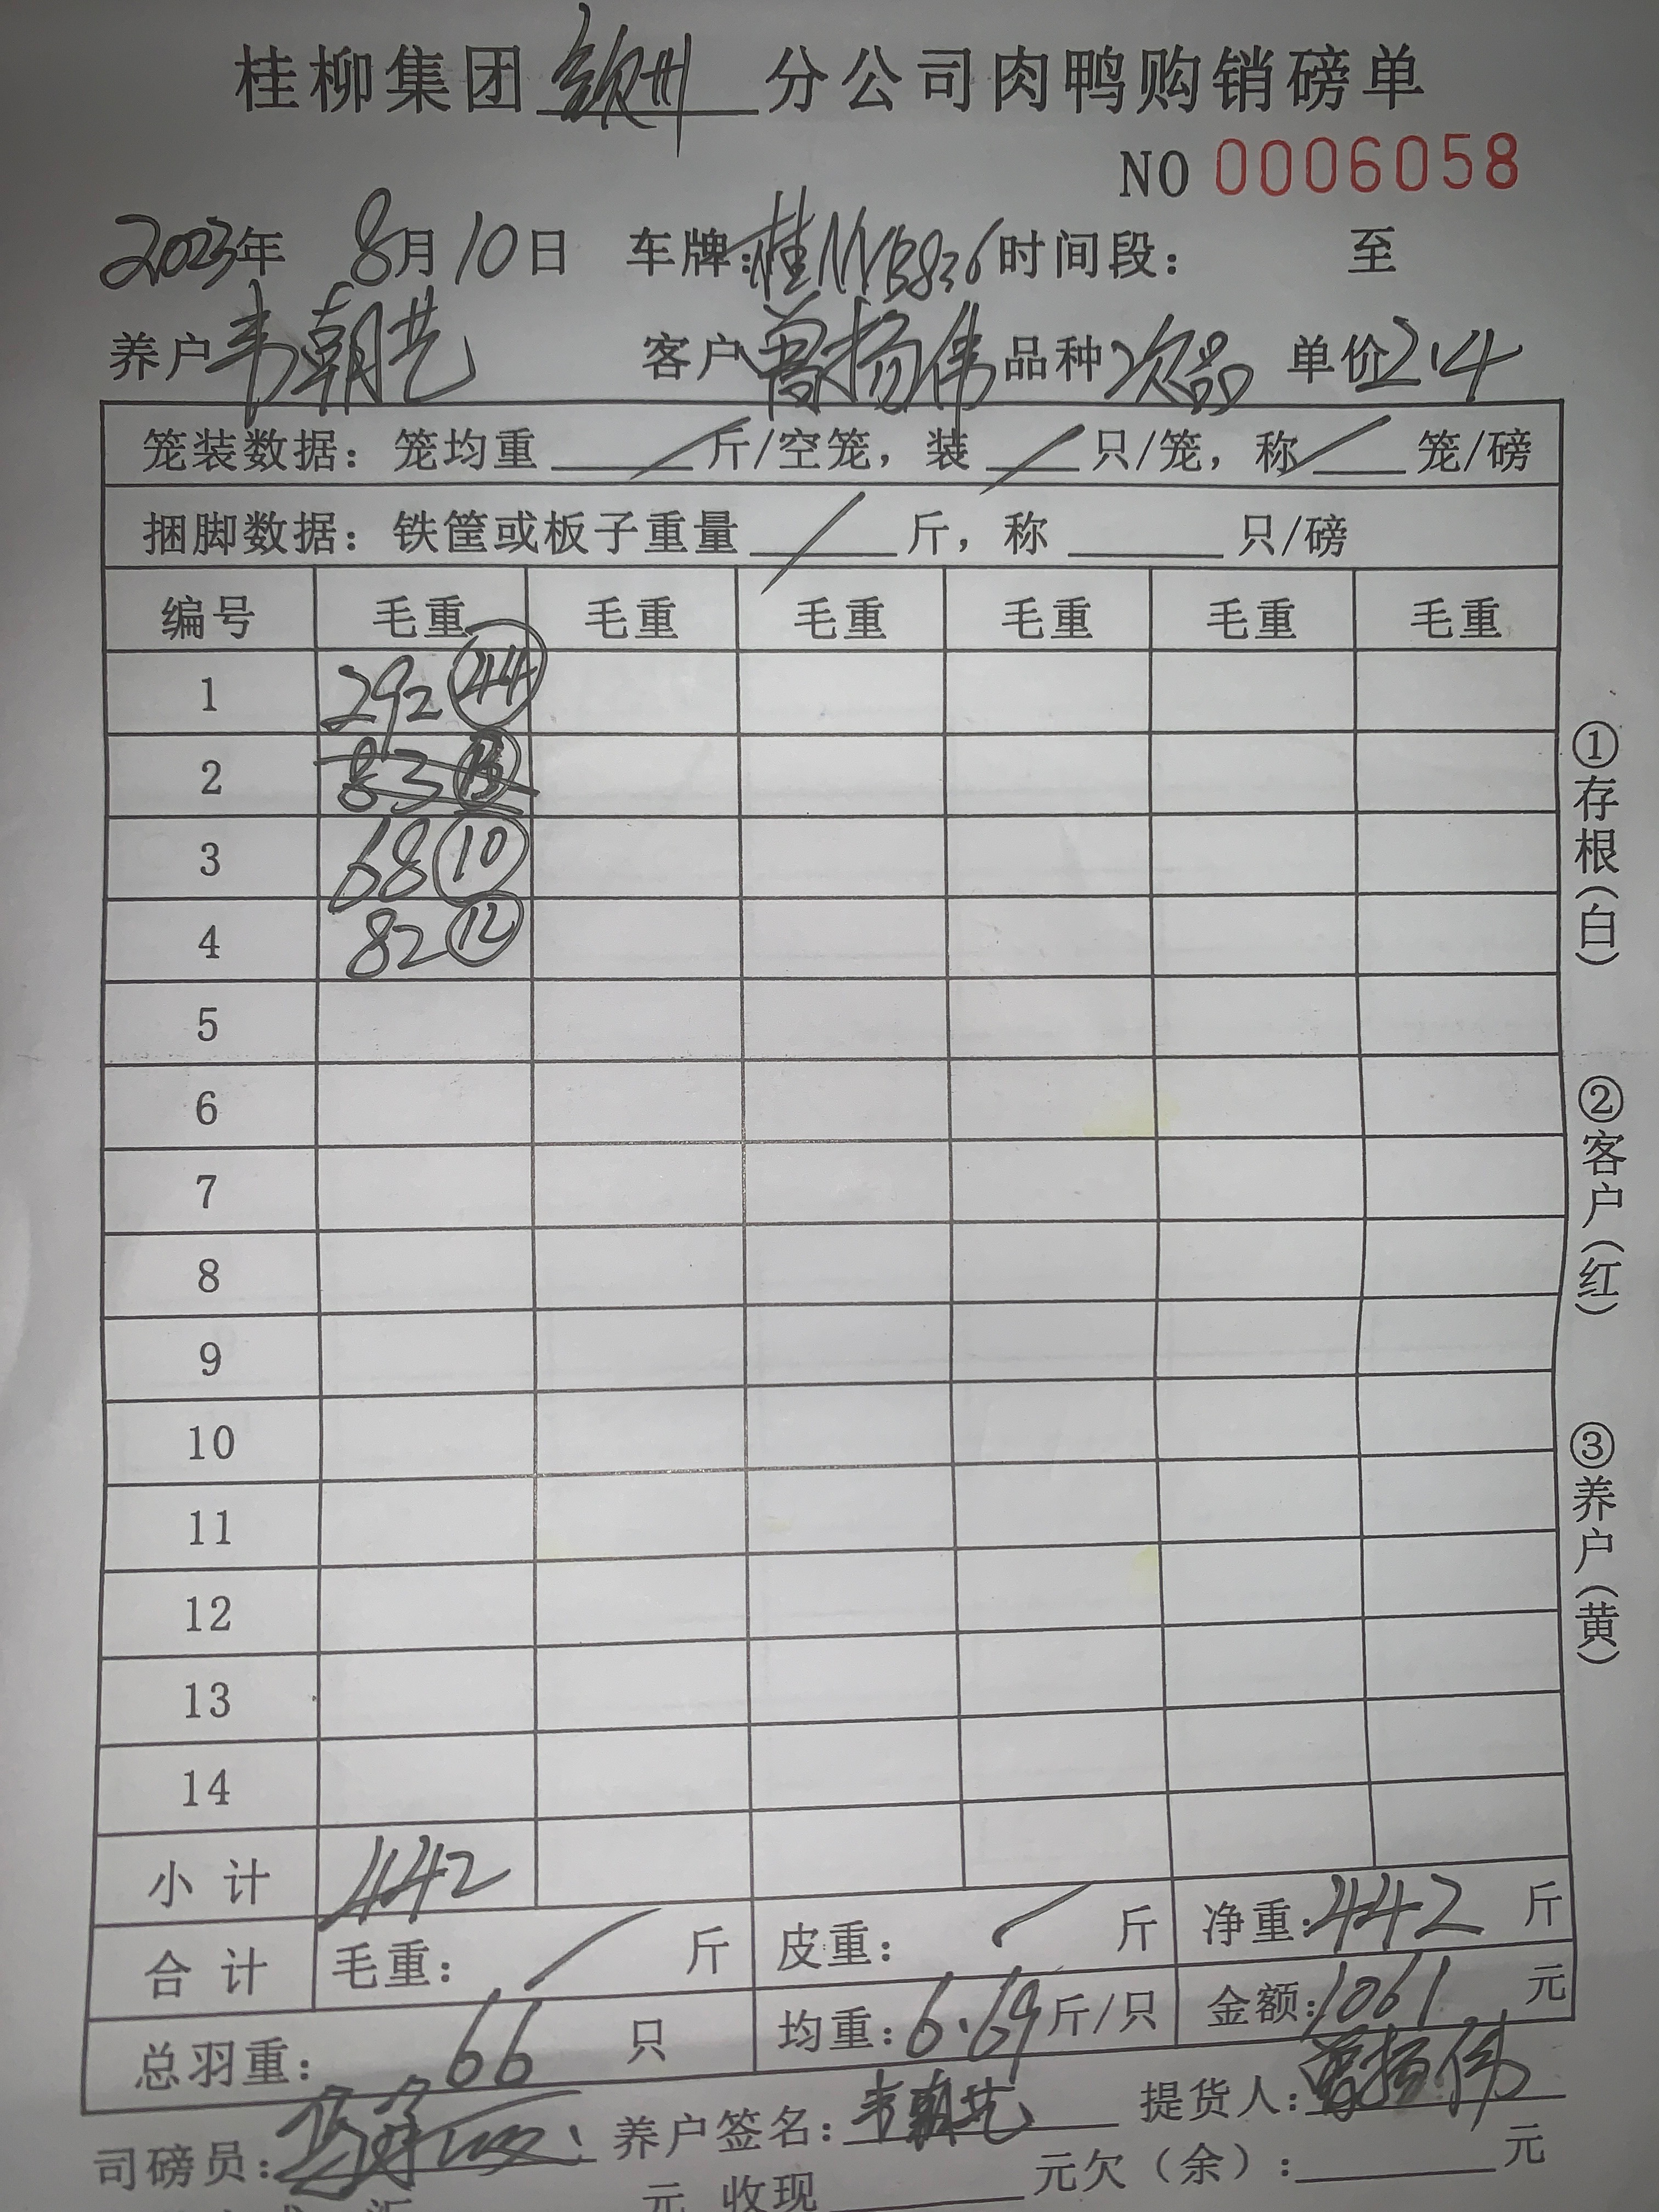 桂柳集团 钦州 分公司肉鸭购销磅单
NO 0006058
2023年 8月10日 车牌:桂NYB836 时间段: 至
养户 韦朝艺 客户 曾扬伟 品种 次品 单价 2.4
笼装数据: 笼均重 / 斤/空笼, 装 / 只/笼, 称 / 笼/磅
捆脚数据: 铁筐或板子重量 / 斤, 称 只/磅
编号 毛重 毛重 毛重 毛重 毛重 毛重
1 292 44
2 83
3 68 10
4 82 12
5
6
7
8
9
10
11
12
13
14
小计 442
合计 毛重: / 斤 皮重: / 斤 净重: 442 斤
总羽重: 66 只 均重: 6.69 斤/只 金额: 1061 元
司磅员: 养户签名: 韦朝艺 提货人: 曾扬伟
元 收现 元欠(余): 元
①存根(白)
②客户(红)
③养户(黄)